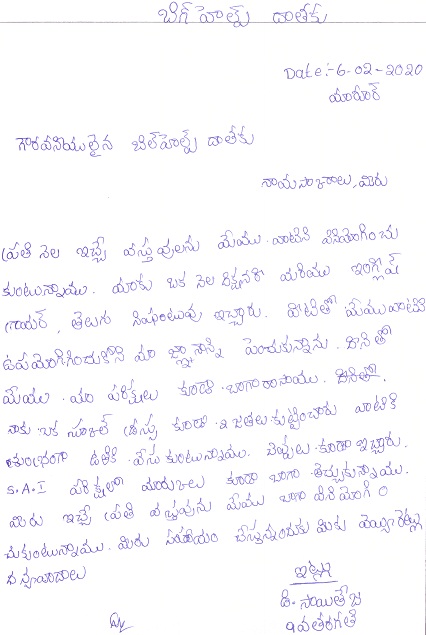 బిగ్ హెల్ప్ దాతకు
Date:-6-02-2020
యారూర్
గౌరవనియులైన బిల్ హెల్ప్ దాతకు
మిరు
ప్రతి నెల ఇచ్చే వస్తువులను మేము వాటిని వినియోగించు
కుంటున్నాము. మాకు ఒక నెల మరియు ఇంగ్లిష్
గ్రామర్, తెలుగు నిఘంటువు ఇచ్చారు. వాటితో మేము వాటిని
ఉపయోగించుకొని మా జ్ఞానాన్ని పెంచుకున్నాను. దానితో
మేము మా పరిక్షలు కూడా బాగా రాసాము. దానితో
నాకు ఒక స్కూల్ డ్రస్స్ కూడా 2 జతలు కుట్టించారు వాటికి
శుభ్రంగా ఉతికి వేసుకుంటున్నాము. బెల్టులు కూడా ఇచ్చారు.
S.A.I పరిక్షలో మార్కులు కూడా బాగా తెచ్చుకున్నాము.
మిరు ఇచ్చే ప్రతి వస్తువును మేము బాగా వినియోగిం
చుకుంటున్నాము. మిరు సహాయం చేస్తున్నందుకు మికు
ధన్యవాదాలు
ఇట్లు
డి. సాయితేజ
9వతరగతి